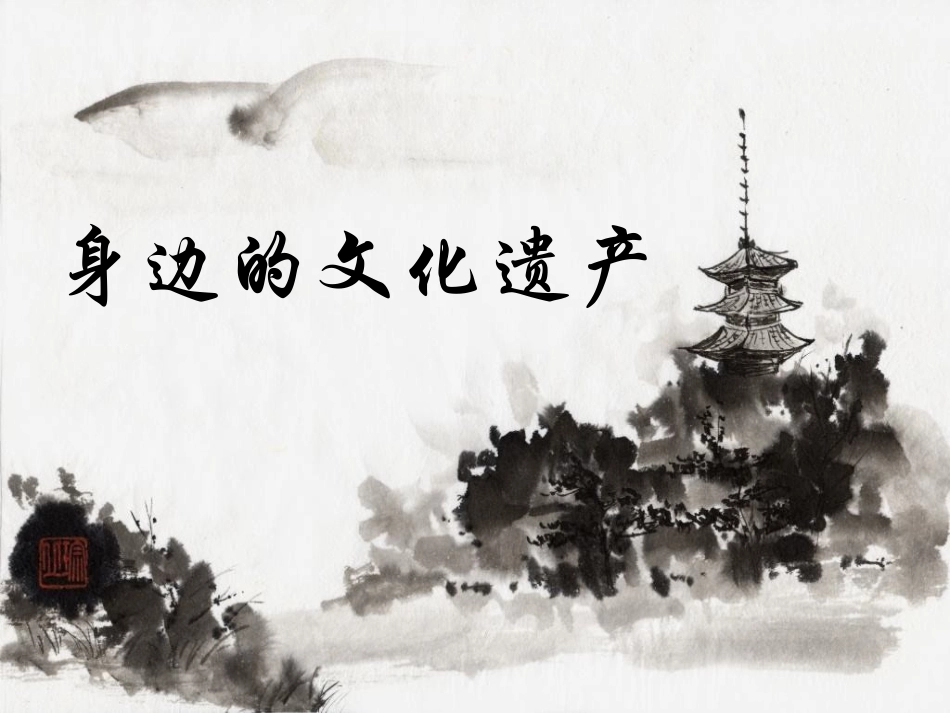 身边的文化遗产